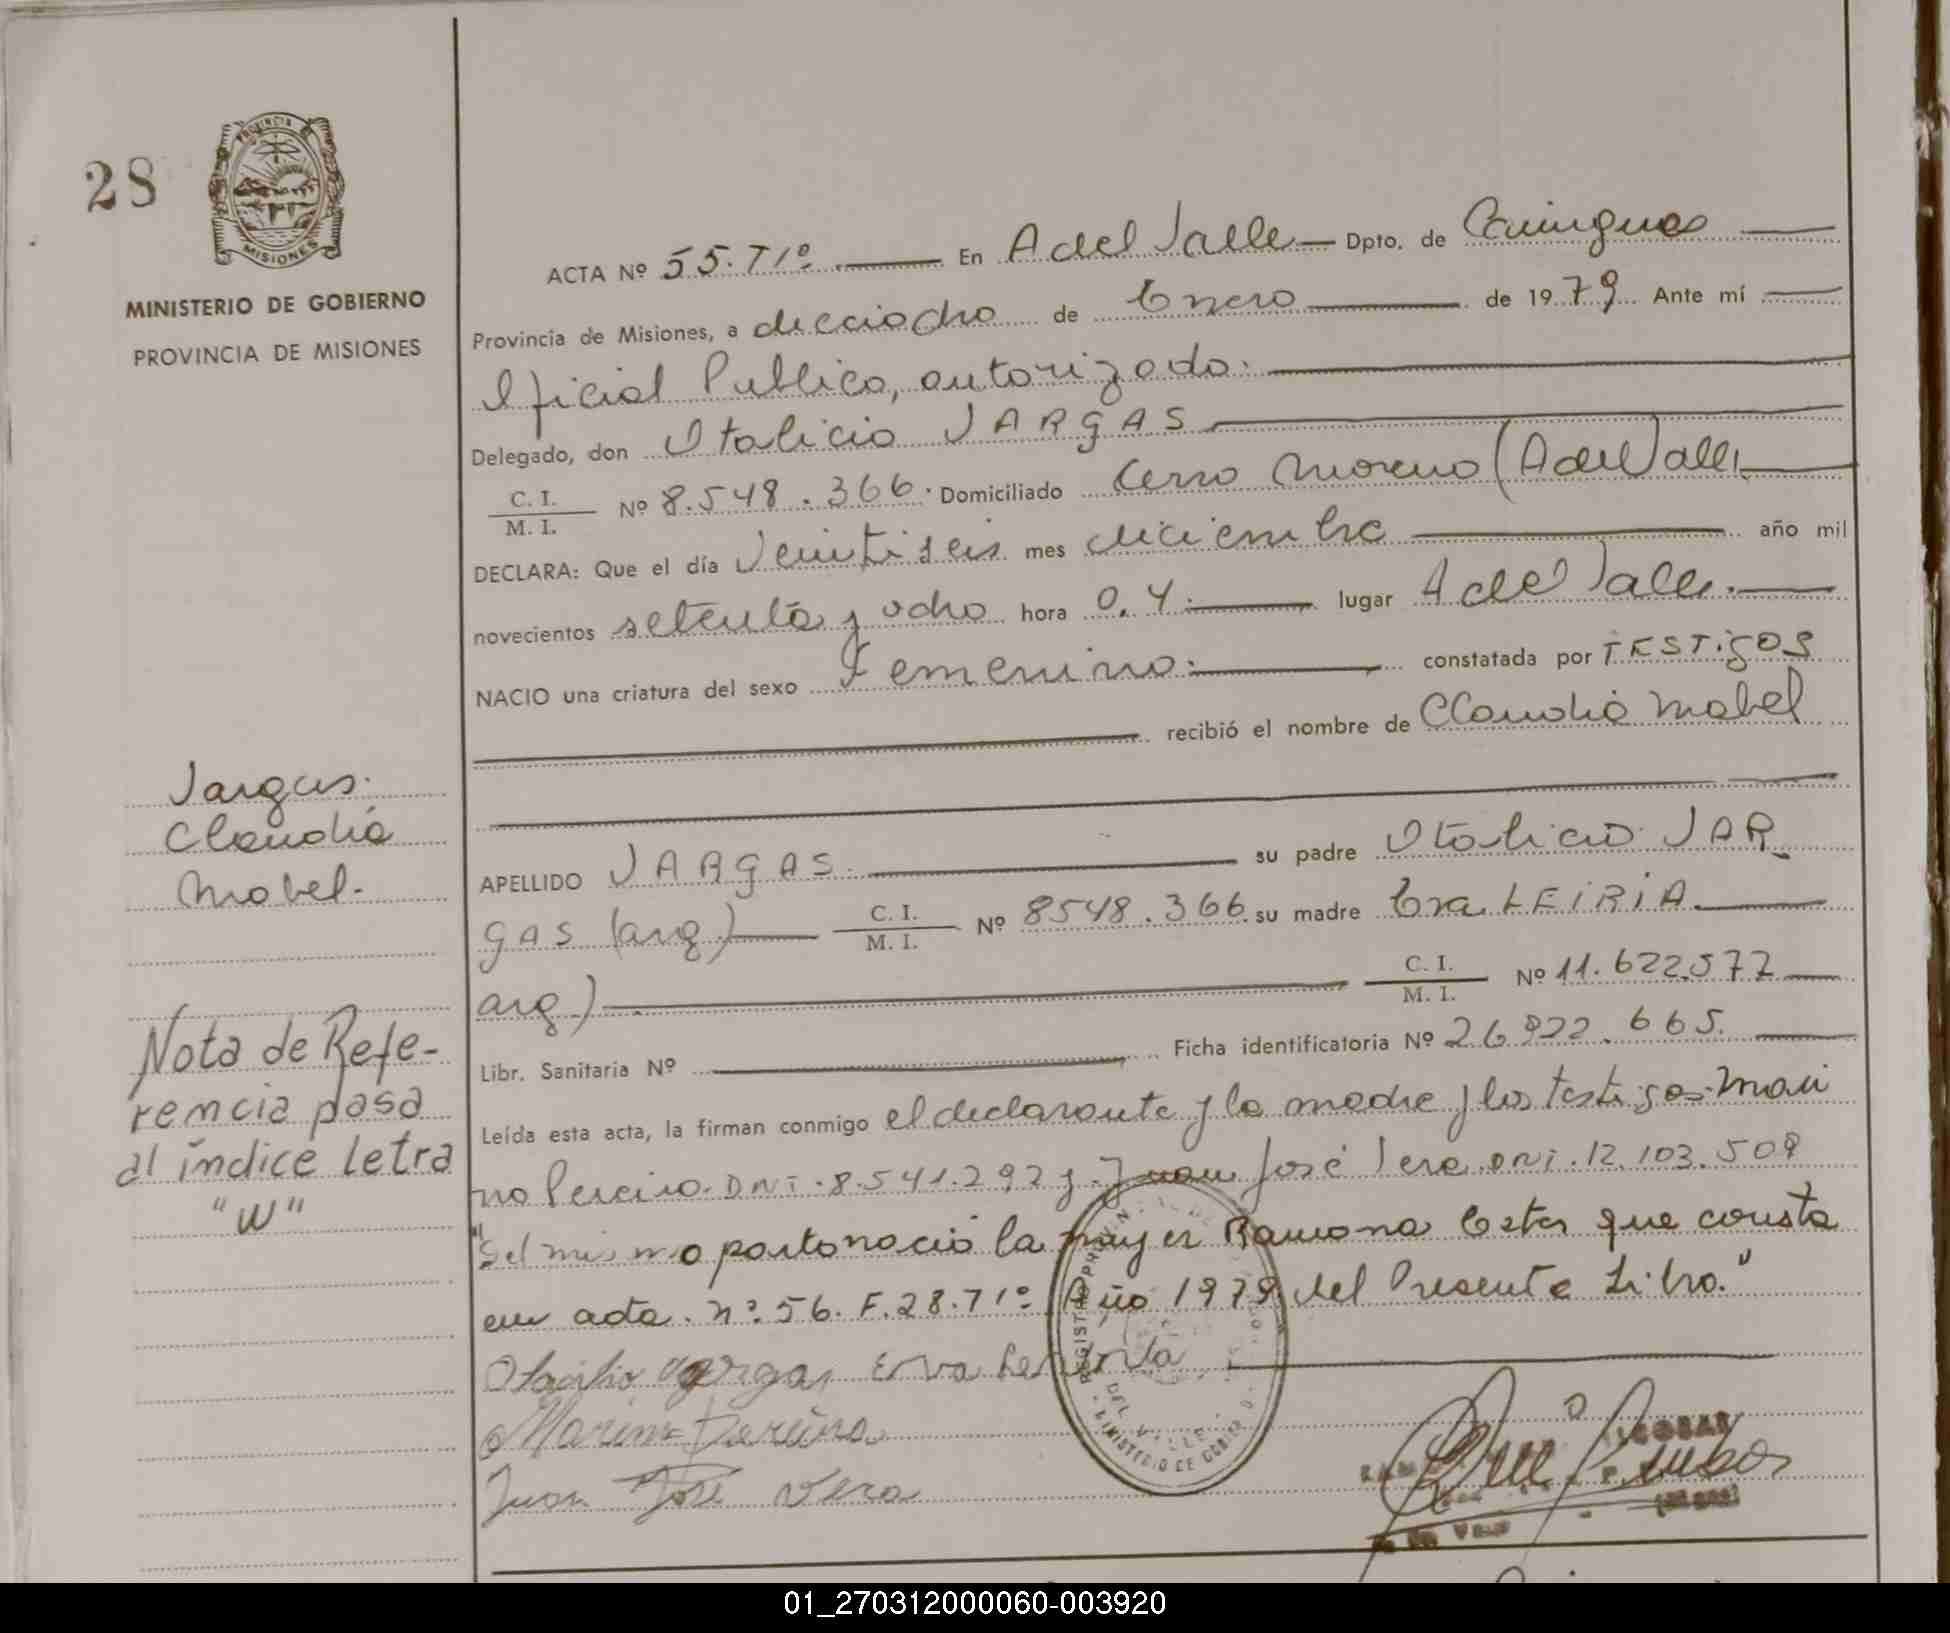 28
PROVINCIA
MISIONES
MINISTERIO DE GOBIERNO
PROVINCIA DE MISIONES
ACTA Nº 55. T1º. En A del Valle Dpto. de Cainguas
Provincia de Misiones, a dieciocho de Enero de 1979 Ante mí
Oficial Publico, autorizado.
Delegado, don Otalicio VARGAS
C. I.
M. I. Nº 8.548.366. Domiciliado Cerro Moreno (A del Valle
DECLARA: Que el día Veintiseis mes diciembre año mil
novecientos setenta y ocho hora 0.4. lugar A del Valle.
NACIO una criatura del sexo Femenino. constatada por TESTigos
recibió el nombre de Claudia Mabel
Vargas.
Claudia
Mabel.
APELLIDO VARGAS. su padre Otalicio VAR
gAS (arg) C. I.
M. I. Nº 8548.366. su madre Eva LEiRiA.
arg) C. I.
M. I. Nº 11.622.577
Libr. Sanitaria Nº Ficha identificatoria Nº 26922.665.
Nota de Refe-
rencia pasa
al índice letra
"W"
Leída esta acta, la firman conmigo el declarante y la madre y los testigos. Mari
no Pereira. DNi. 8.541.292 y Juan José Vera DNi. 12.103.509
"Del mismo parto nació la mujer Ramona Ester que consta
en acta. nº. 56. F.28. T1º. Año 1979 del Presente Libro."
Vargas Eva
Juan José Vera